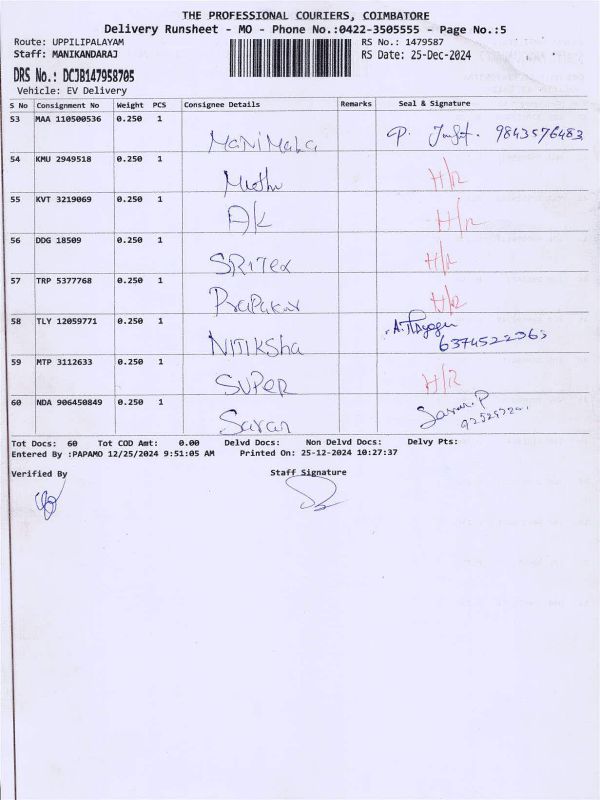 THE PROFESSIONAL COURIERS, COIMBATORE
Delivery Runsheet - MO - Phone No.:0422-3505555 - Page No.:5
Route: UPPILIPALAYAM RS No.: 1479587
Staff: MANIKANDARAJ RS Date: 25-Dec-2024
DRS No.: DCJB147958705
Vehicle: EV Delivery
S No Consignment No Weight PCS Consignee Details Remarks Seal & Signature
53 MAA 110500536 0.250 1
P. 9843576483
54 KMU 2949518 0.250 1
Muthu H/R
55 KVT 3219069 0.250 1
AK H/R
56 DDG 18509 0.250 1
SRITex H/R
57 TRP 5377768 0.250 1
Prapakar H/R
58 TLY 12059771 0.250 1
NITIKSha
59 MTP 3112633 0.250 1
SUPER H/R
60 NDA 906450849 0.250 1
Saran Saran.P
Tot Docs: 60 Tot COD Amt: 0.00 Delvd Docs: Non Delvd Docs: Delvy Pts:
Entered By :PAPAMO 12/25/2024 9:51:05 AM Printed On: 25-12-2024 10:27:37
Verified By Staff Signature